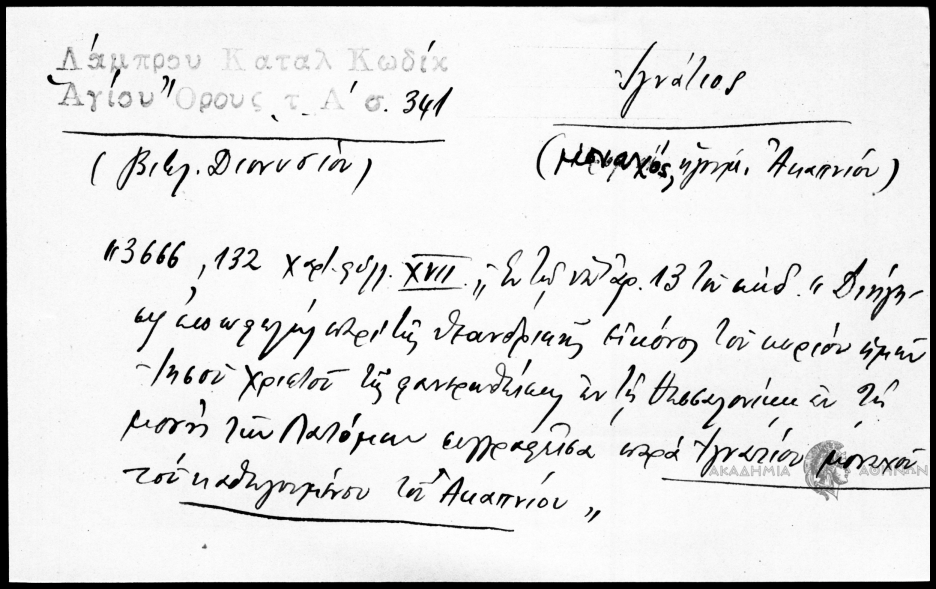 Λάμπρου Καταλ Κωδίκ
Ἁγίου Ὄρους τ. Α' σ. 341
Ἰγνάτιος
(Βιβλ. Διονυσίου)
(μοναχός, ἡγουμ. Ἀκαπνίου)
"3666, 132 χαρτ. φύλλ. XVII. „ Ἐν τῷ ὑπ' ἀρ. 13 τοῦ κώδ. "Διήγη-
σις ἐπωφελὴς περὶ τῆς θεανδρικῆς εἰκόνος τοῦ κυρίου ἡμῶν
Ἰησοῦ Χριστοῦ τῆς φανερωθείσης ἐν τῇ Θεσσαλονίκῃ ἐν τῇ
μονῇ τῶν Λατόμων συγγραφεῖσα παρὰ Ἰγνατίου μοναχοῦ
τοῦ καθηγουμένου τοῦ Ἀκαπνίου „
ΑΚΑΔΗΜΙΑ ΑΘΗΝΩΝ